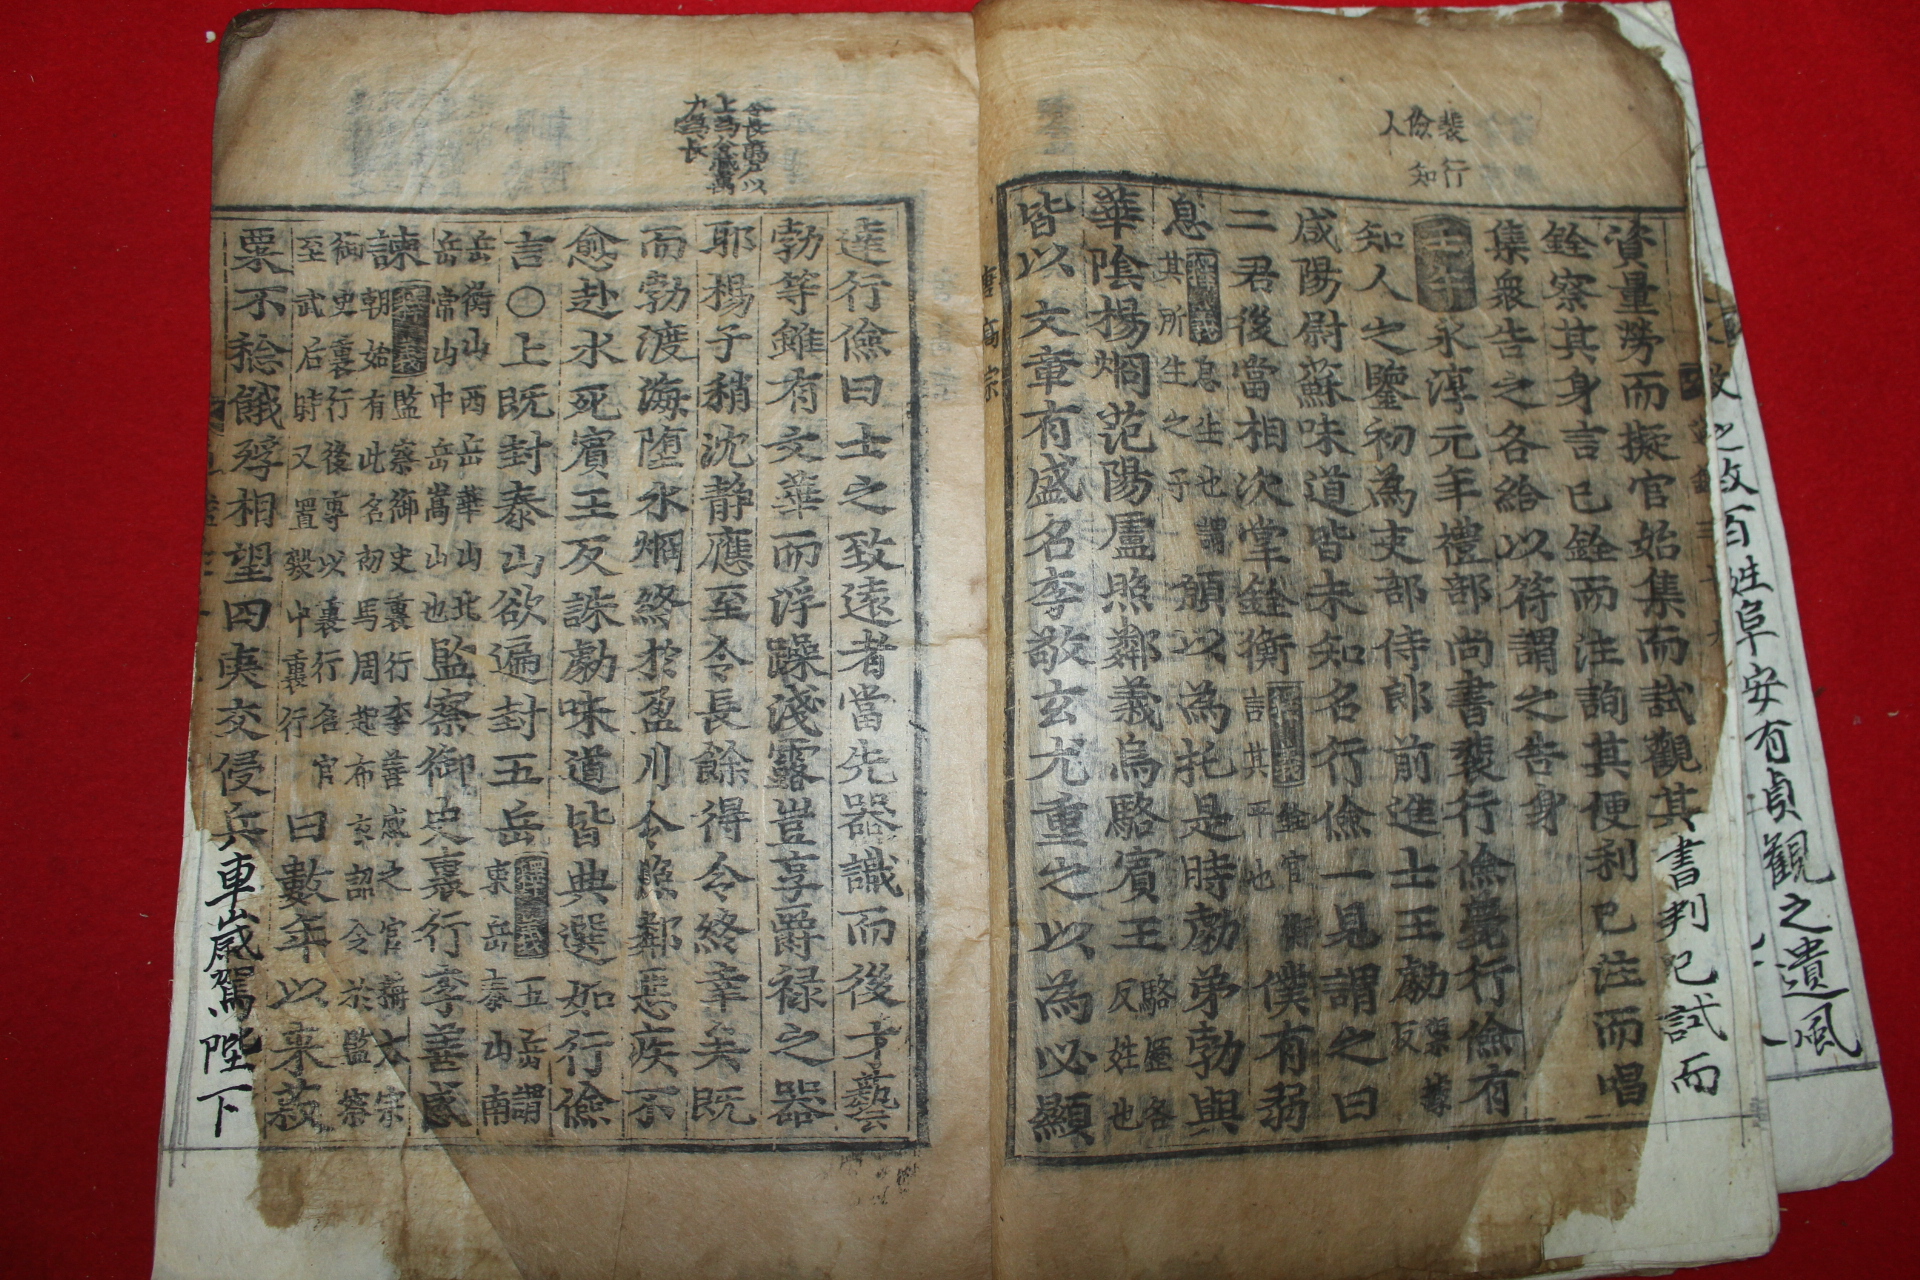 裴行
儉知
人
資量勞而擬官始集而試觀其書判已試而
銓察其身言已銓而注詢其便利已注而唱
集衆告之各給以符謂之告身
壬午永淳元年禮部尚書裴行儉薨行儉有
知人之鑒初爲吏部侍郎前進士王勮
咸陽尉蘇味道皆未知名行儉一見謂之曰
二君後當相次掌銓衡 釋義 銓官 衡 言其平也 僕有弱
息 釋義 息生也謂其所生之子 願以爲托是時勮弟勃與
華陰楊烱范陽盧照鄰義烏駱賓王 駱 各反姓也
皆以文章有盛名李敬玄尤重之以爲必顯
唐高宗
達行儉曰士之致遠者當先器識而後才藝
勃等雖有文華而浮躁淺露豈享爵禄之器
耶楊子稍沈静應至令長餘得令終幸矣既
而勃渡海墮水烱終於盈川令照鄰惡疾不
愈赴水死賓王反誅勮味道皆典選如行儉
言○上既封泰山欲遍封五岳 釋義 五岳謂東岳泰山南
岳衡山西岳華山北岳常山中岳嵩山也 監察御史裏行李善感
諫 釋義 監察御史裏行李善感之官 太宗朝始有此名初馬周 布衣詔令於監察
御史裏行後 以裏行名官至武后時又置 中裏行 曰數年以來菽
粟不稔餓殍相望四夷交侵兵車歲駕陛下
之政百姓阜安有貞觀之遺風